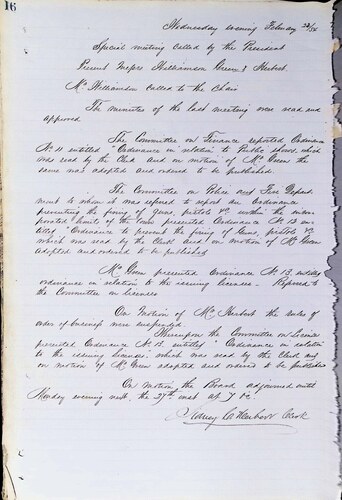 16
Wednesday evening February
Special meeting called by the President
Present Messrs Williamson Green & Herbert
Mr Williamson called to the Chair
The minutes of the last meeting were read and
approved
The Committee on Finance reported Ordinance
No 11 entitled "Ordinance in relation to Public shows, which
was read by the Clerk and on motion of Mr Green the
same was adopted and ordered to be published.
The Committee on Police and Fire Depart
ment to whom it was refered to report an Ordinance
preventing the firing of Guns, pistols &c within the incor
porated limits of the Town presented Ordinance No 12 en
titled "Ordinance to prevent the firing of Guns, pistols &c
which was read by the Clerk and on motion of Mr Green
adopted and ordered to be published
Mr Green presented Ordinance No 13 entitled
ordinance in relation to the issuing licenses. Refered to
the Committee on licenses
On Motion of Mr Herbert the rules of
order of business were suspended.
Whereupon the Committee on License
presented Ordinance No 13. entitled "Ordinance in relation
to the issuing licenses; which was read by the Clerk and
on motion of Mr Green adopted and ordered to be published
On motion the Board adjourned until
Monday evening next, the 27th inst at 7 o'c.
Clerk